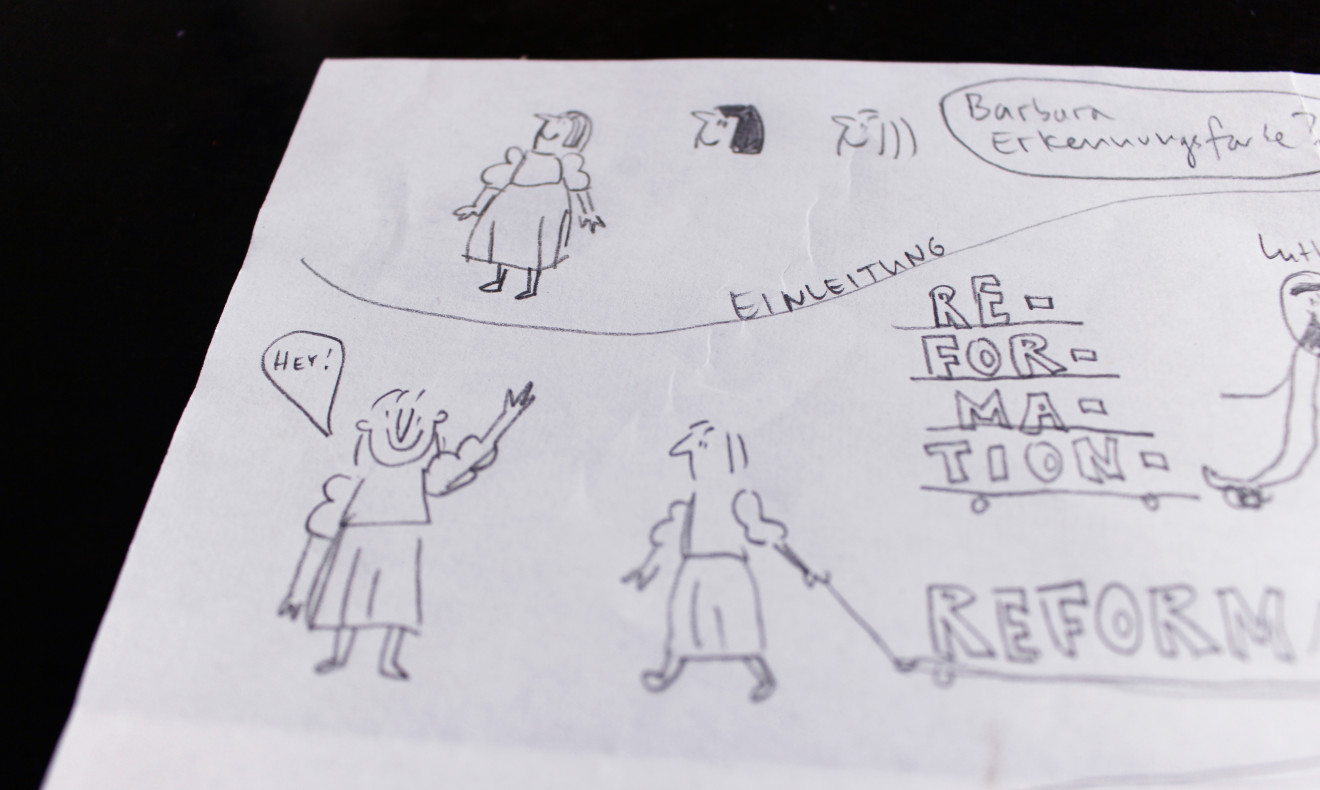 Barbara
Erkennungsfarbe?
EINLEITUNG
HEY!
RE-
FOR-
MA-
TION-
REFORM